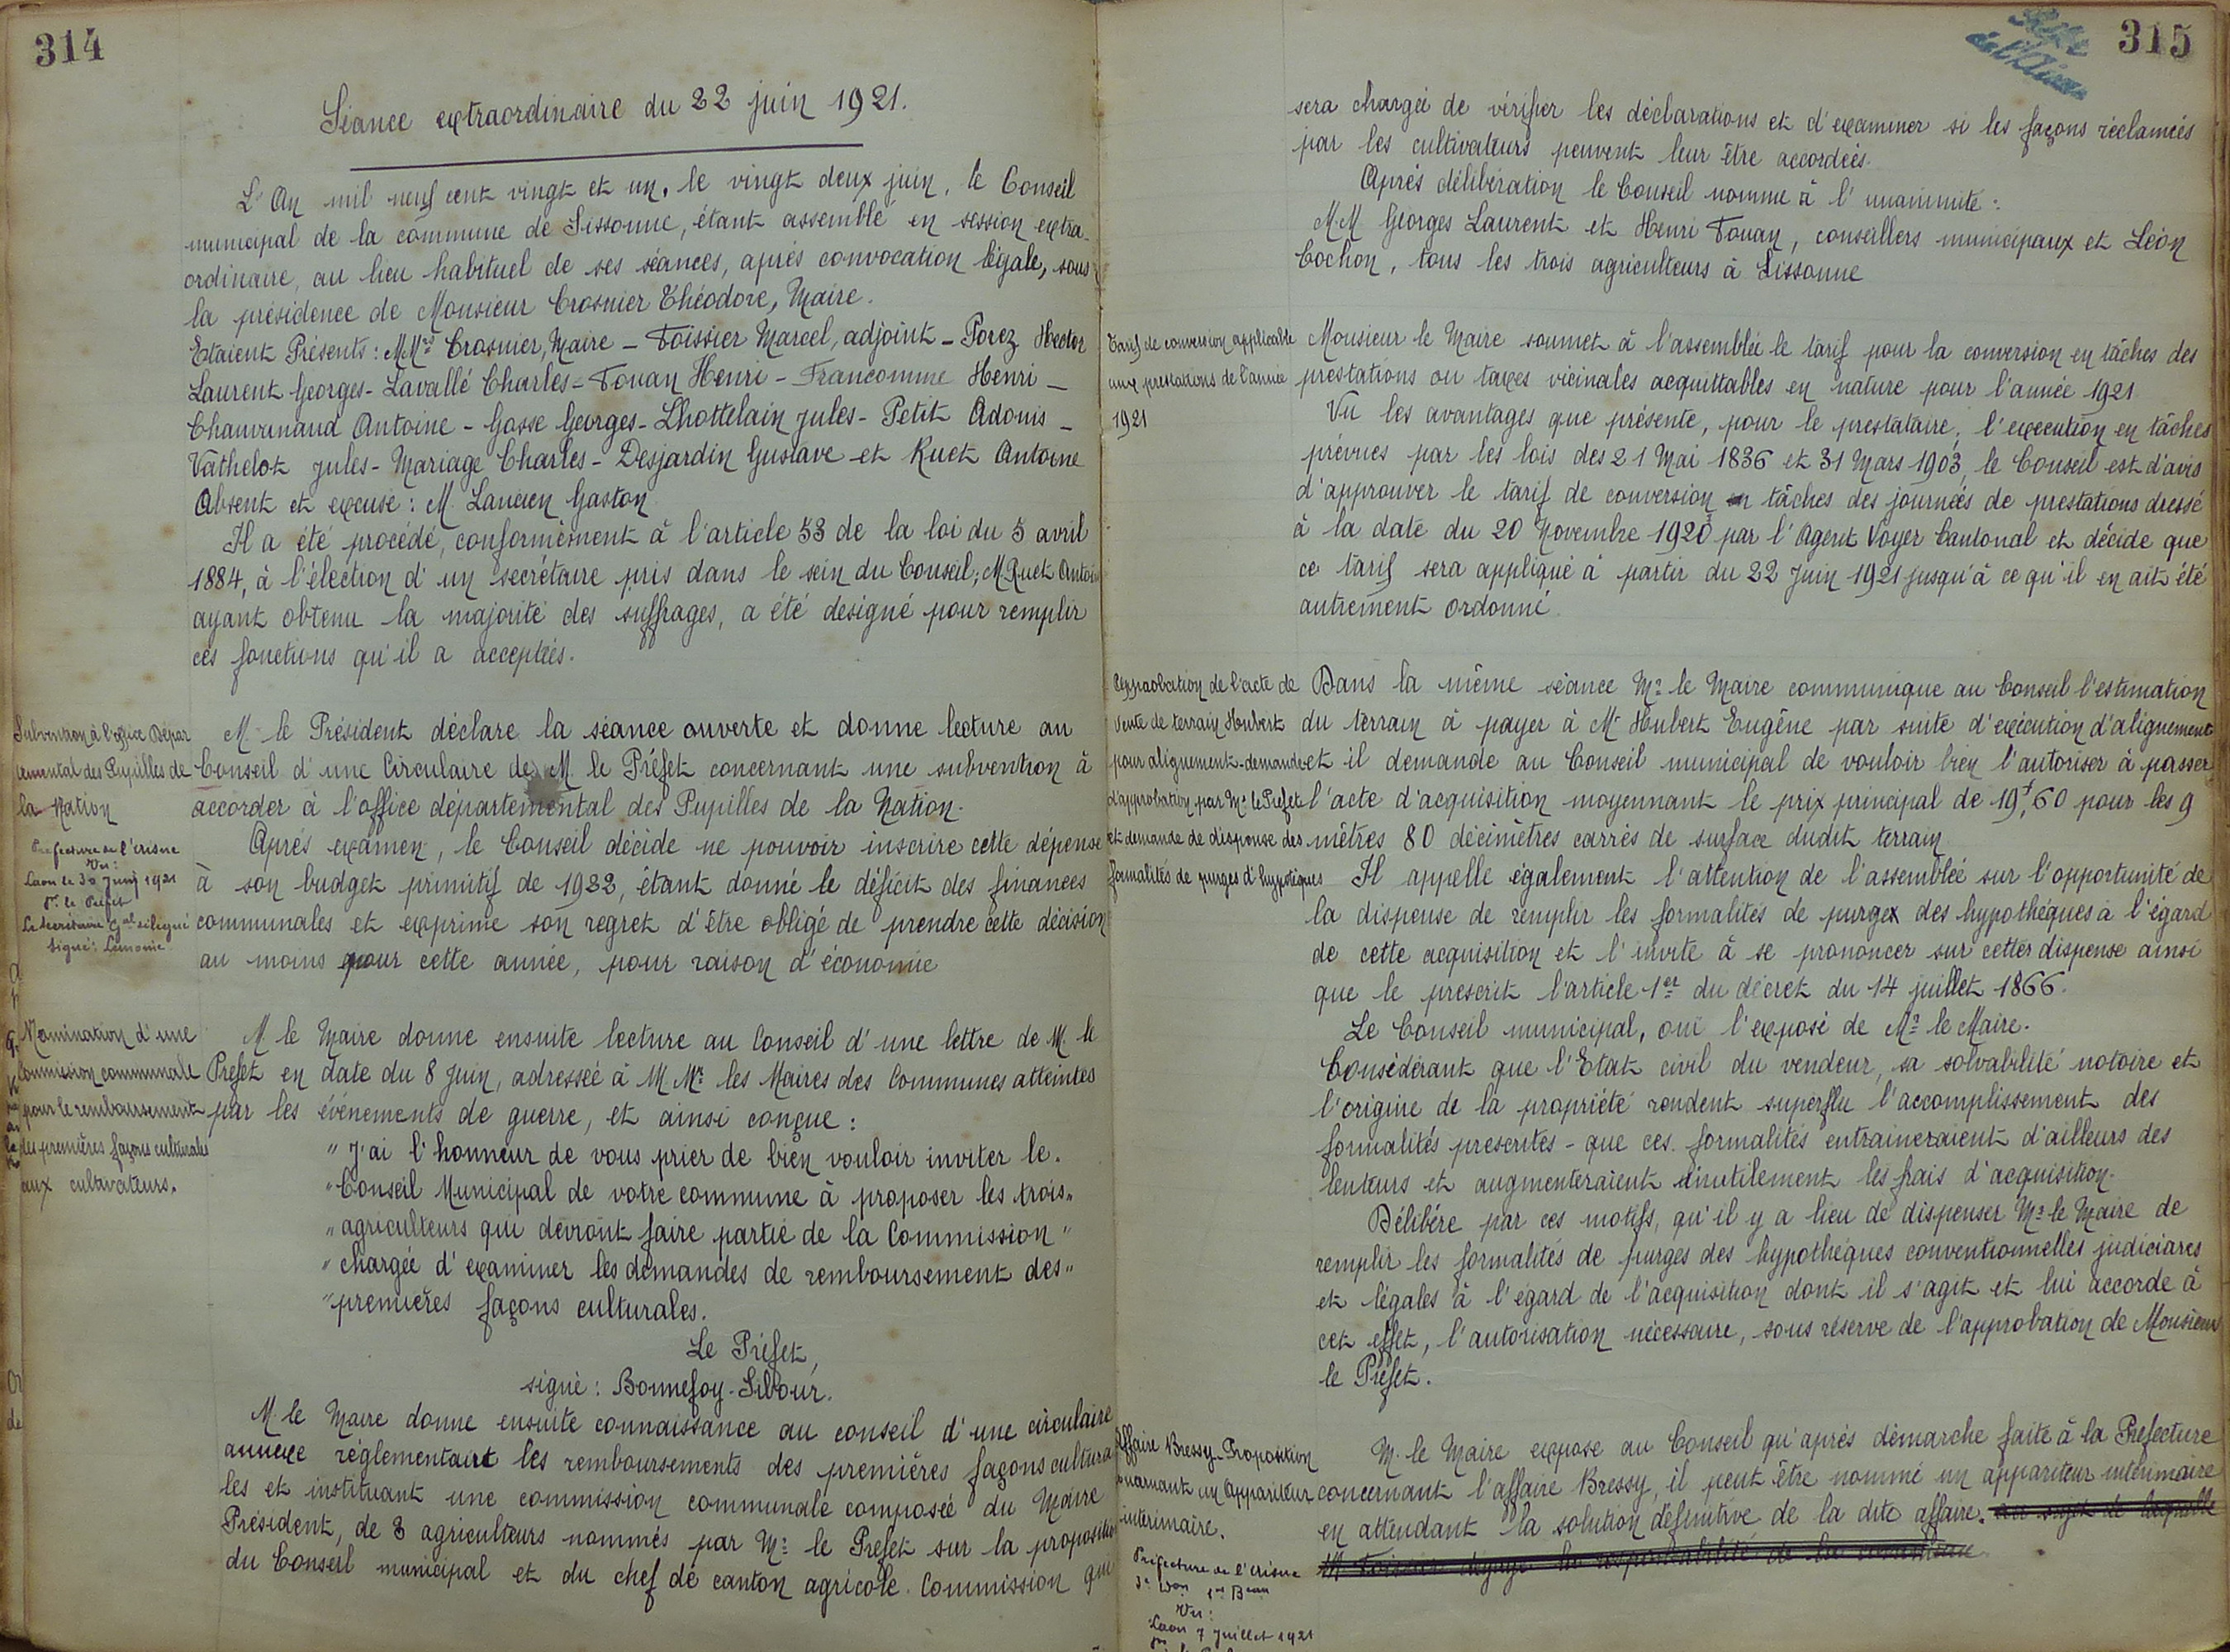 314
Séance extraordinaire du 22 juin 1921.
L'An mil neuf cent vingt et un, le vingt deux juin, le Conseil
municipal de la commune de Sissonne, étant assemblé en session extra-
ordinaire, au lieu habituel de ses séances, après convocation légale, sous
la présidence de Monsieur Crosnier Théodore, Maire.
Etaient Présents: MMrs Crosnier, Maire - Foissier Marcel, adjoint - Porez Hector
Laurent Georges - Lavallé Charles - Touan Henri - Francomme Henri -
Chauvenaud Antoine - Gosse Georges - Lhottelain Jules - Petit Adonis -
Vathelot Jules - Mariage Charles - Desjardin Gustave et Ruet Antoine
Absent et excusé: M. Lancien Gaston
Il a été procédé, conformément à l'article 53 de la loi du 5 avril
1884, à l'élection d'un secrétaire pris dans le sein du Conseil; M. Ruet Antoi
ayant obtenu la majorité des suffrages, a été désigné pour remplir
ces fonctions qu'il a acceptées.
Subvention à l'office Dépar
temental des Pupilles de
la Nation
Préfecture de l'Aisne
Vu:
Laon le 30 Juin 1921
Pr. le Préfet
Le Secrétaire Gal délégué
Signé: Lemoine
M. le Président déclare la séance ouverte et donne lecture au
Conseil d'une Circulaire de M. le Préfet concernant une subvention à
accorder à l'office départemental des Pupilles de la Nation.
Après examen, le Conseil décide ne pouvoir inscrire cette dépense
à son budget primitif de 1922, étant donné le déficit des finances
communales et exprime son regret d'être obligé de prendre cette décision
au moins pour cette année, pour raison d'économie
Nomination d'une
Commission communale
pour le remboursement
des premières façons culturales
aux cultivateurs.
M. le Maire donne ensuite lecture au Conseil d'une lettre de M. le
Préfet en date du 8 Juin, adressée à M.Mrs les Maires des Communes atteintes
par les événements de guerre, et ainsi conçue:
" J'ai l'honneur de vous prier de bien vouloir inviter le.
" Conseil Municipal de votre commune à proposer les trois "
" agriculteurs qui devront faire partie de la Commission "
" chargée d'examiner les demandes de remboursement des "
" premières façons culturales.
Le Préfet,
signé: Bonnefoy-Sibour.
M. le Maire donne ensuite connaissance au conseil d'une circulaire
annexe réglementant les remboursements des premières façons cultura
les et instituant une commission communale composée du Maire
Président, de 3 agriculteurs nommés par Mr. le Préfet sur la propositio
du Conseil municipal et du chef de canton agricole. Commission qui
315
de l'Aisne
sera chargée de vérifier les déclarations et d'examiner si les façons réclamées
par les cultivateurs peuvent leur être accordées.
Après délibération le Conseil nomme à l'unanimité:
MM Georges Laurent et Henri Touan, conseillers municipaux et Léon
Cochon, tous les trois agriculteurs à Sissonne
Tarif de conversion applicable
aux prestations de l'année
1921
Monsieur le Maire soumet à l'assemblée le tarif pour la conversion en tâches des
prestations ou taxes vicinales acquittables en nature pour l'année 1921
Vu les avantages que présente, pour le prestataire, l'exécution en tâches
prévues par les lois des 21 Mai 1836 et 31 Mars 1903, le Conseil est d'avis
d'approuver le tarif de conversion en tâches des journées de prestations dressé
à la date du 20 Novembre 1920 par l'Agent Voyer Cantonal et décide que
ce tarif sera appliqué à partir du 22 Juin 1921 jusqu'à ce qu'il en ait été
autrement ordonné.
Approbation de l'acte de
Vente de terrain Houbert
pour alignement-demande
d'approbation par Mr. le Préfet
et demande de dispense des
formalités de purges d'hypotèques
Dans la même séance Mr. le Maire communique au Conseil l'estimation
du terrain à payer à Mr. Hubert Eugène par suite d'exécution d'alignement
et il demande au Conseil municipal de vouloir bien l'autoriser à passer
l'acte d'acquisition moyennant le prix principal de 19f,60 pour les 9
mètres 80 décimètres carrés de surface dudit terrain
Il appelle également l'attention de l'assemblée sur l'opportunité de
la dispense de remplir les formalités de purges des hypothéques à l'égard
de cette acquisition et l'invite à se prononcer sur cette dispense ainsi
que le prescrit l'article 1er du décret du 14 juillet 1866.
Le Conseil municipal, ouï l'exposé de Mr. le Maire.
Considérant que l'Etat civil du vendeur, sa solvabilité notoire et
l'origine de la propriété rendent superflu l'accomplissement des
formalités prescrites - que ces formalités entraineraient d'ailleurs des
lenteurs et augmenteraient inutilement les frais d'acquisition.
Délibère par ces motifs, qu'il y a lieu de dispenser Mr. le Maire de
remplir les formalités de purges des hypothéques conventionnelles judiciares
et légales à l'égard de l'acquisition dont il s'agit et lui accorde à
cet effet, l'autorisation nécessaire, sous réserve de l'approbation de Monsieur
le Préfet.
Affaire Bressy-Proposition
concernant un appariteur
intérimaire.
Préfecture de l'Aisne
Vu:
Laon 7 Juillet 1921
M. le Maire expose au Conseil qu'après démarche faite à la Préfecture
concernant l'affaire Bressy, il peut être nommé un appariteur intérimaire
en attendant la solution définitive de la dite affaire. au sujet de laquelle
M. Foissier dégage la responsabilité de la commune